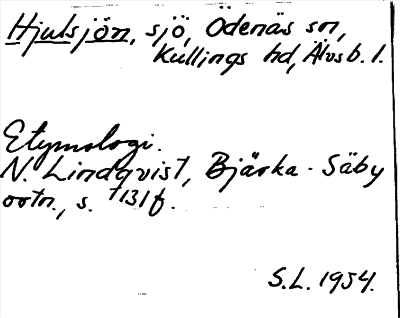 Hjulsjön, sjö, Ödenäs sn,
Kullings hd, Älvsb. l.
Etymologi.
N. Lindqvist, Bjärka-Säby
ortn., s. 131 f.
S.L. 1954.